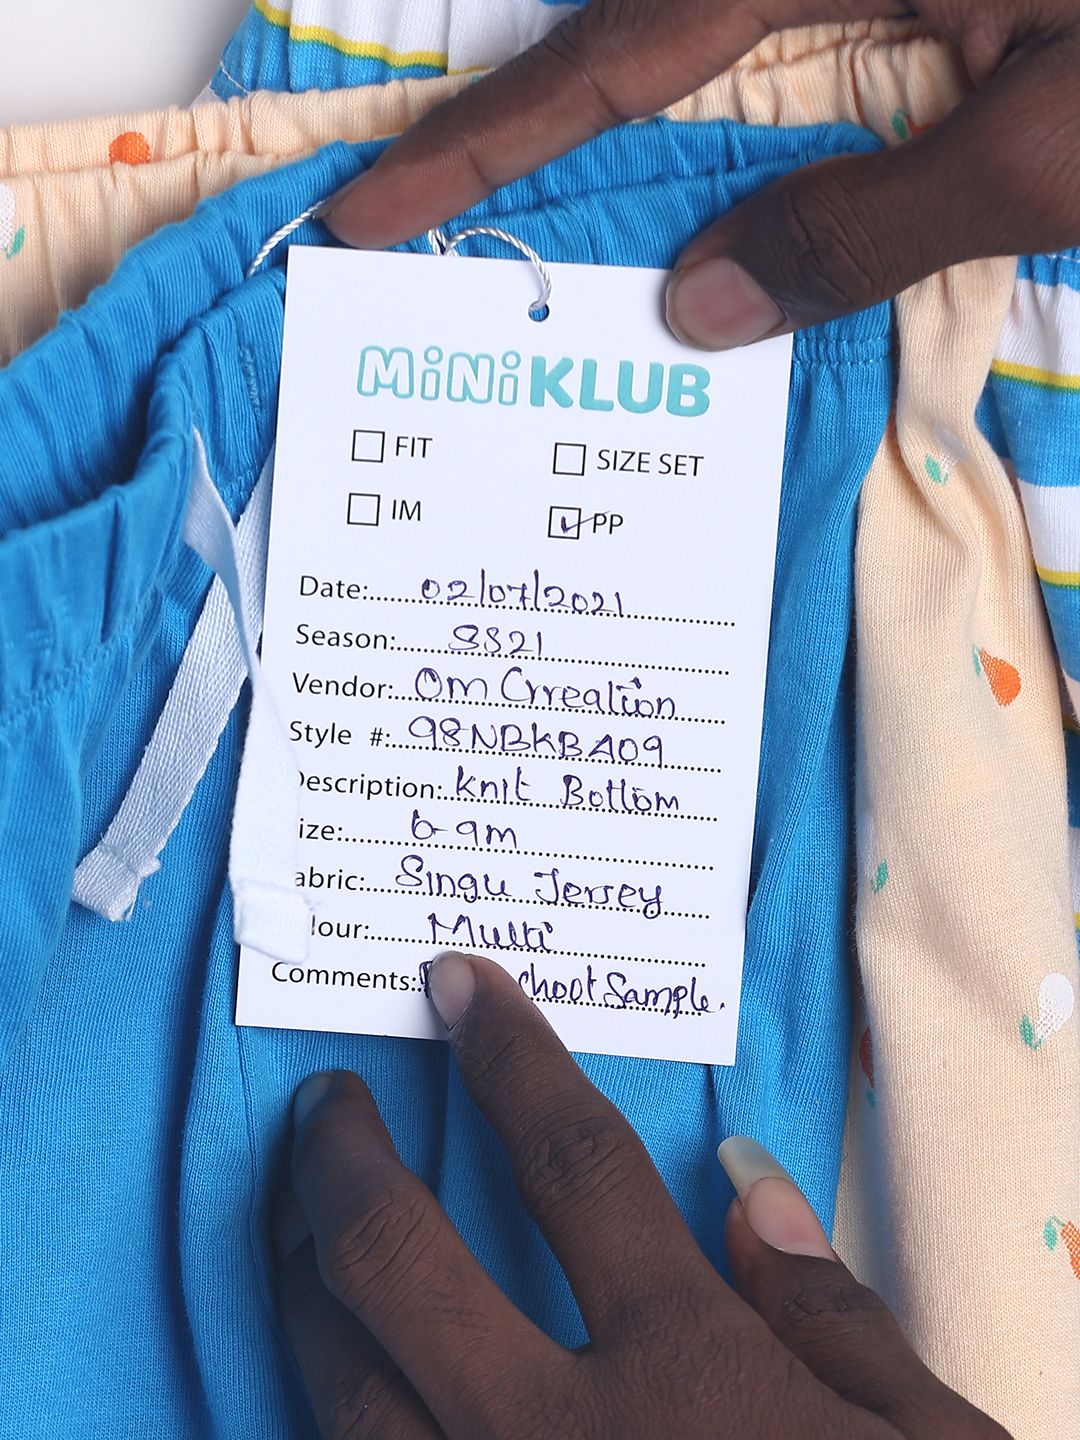 MiNiKLUB
FIT
SIZE SET
IM
PP
Date: 02/07/2021
Season: SS21
Vendor: Om Crrealion
Style #: 98NBKBA09
escription: Knit Bottom
ize: 6-9m
abric: Singu Jersey
lour: Multi
Comments: Sample.